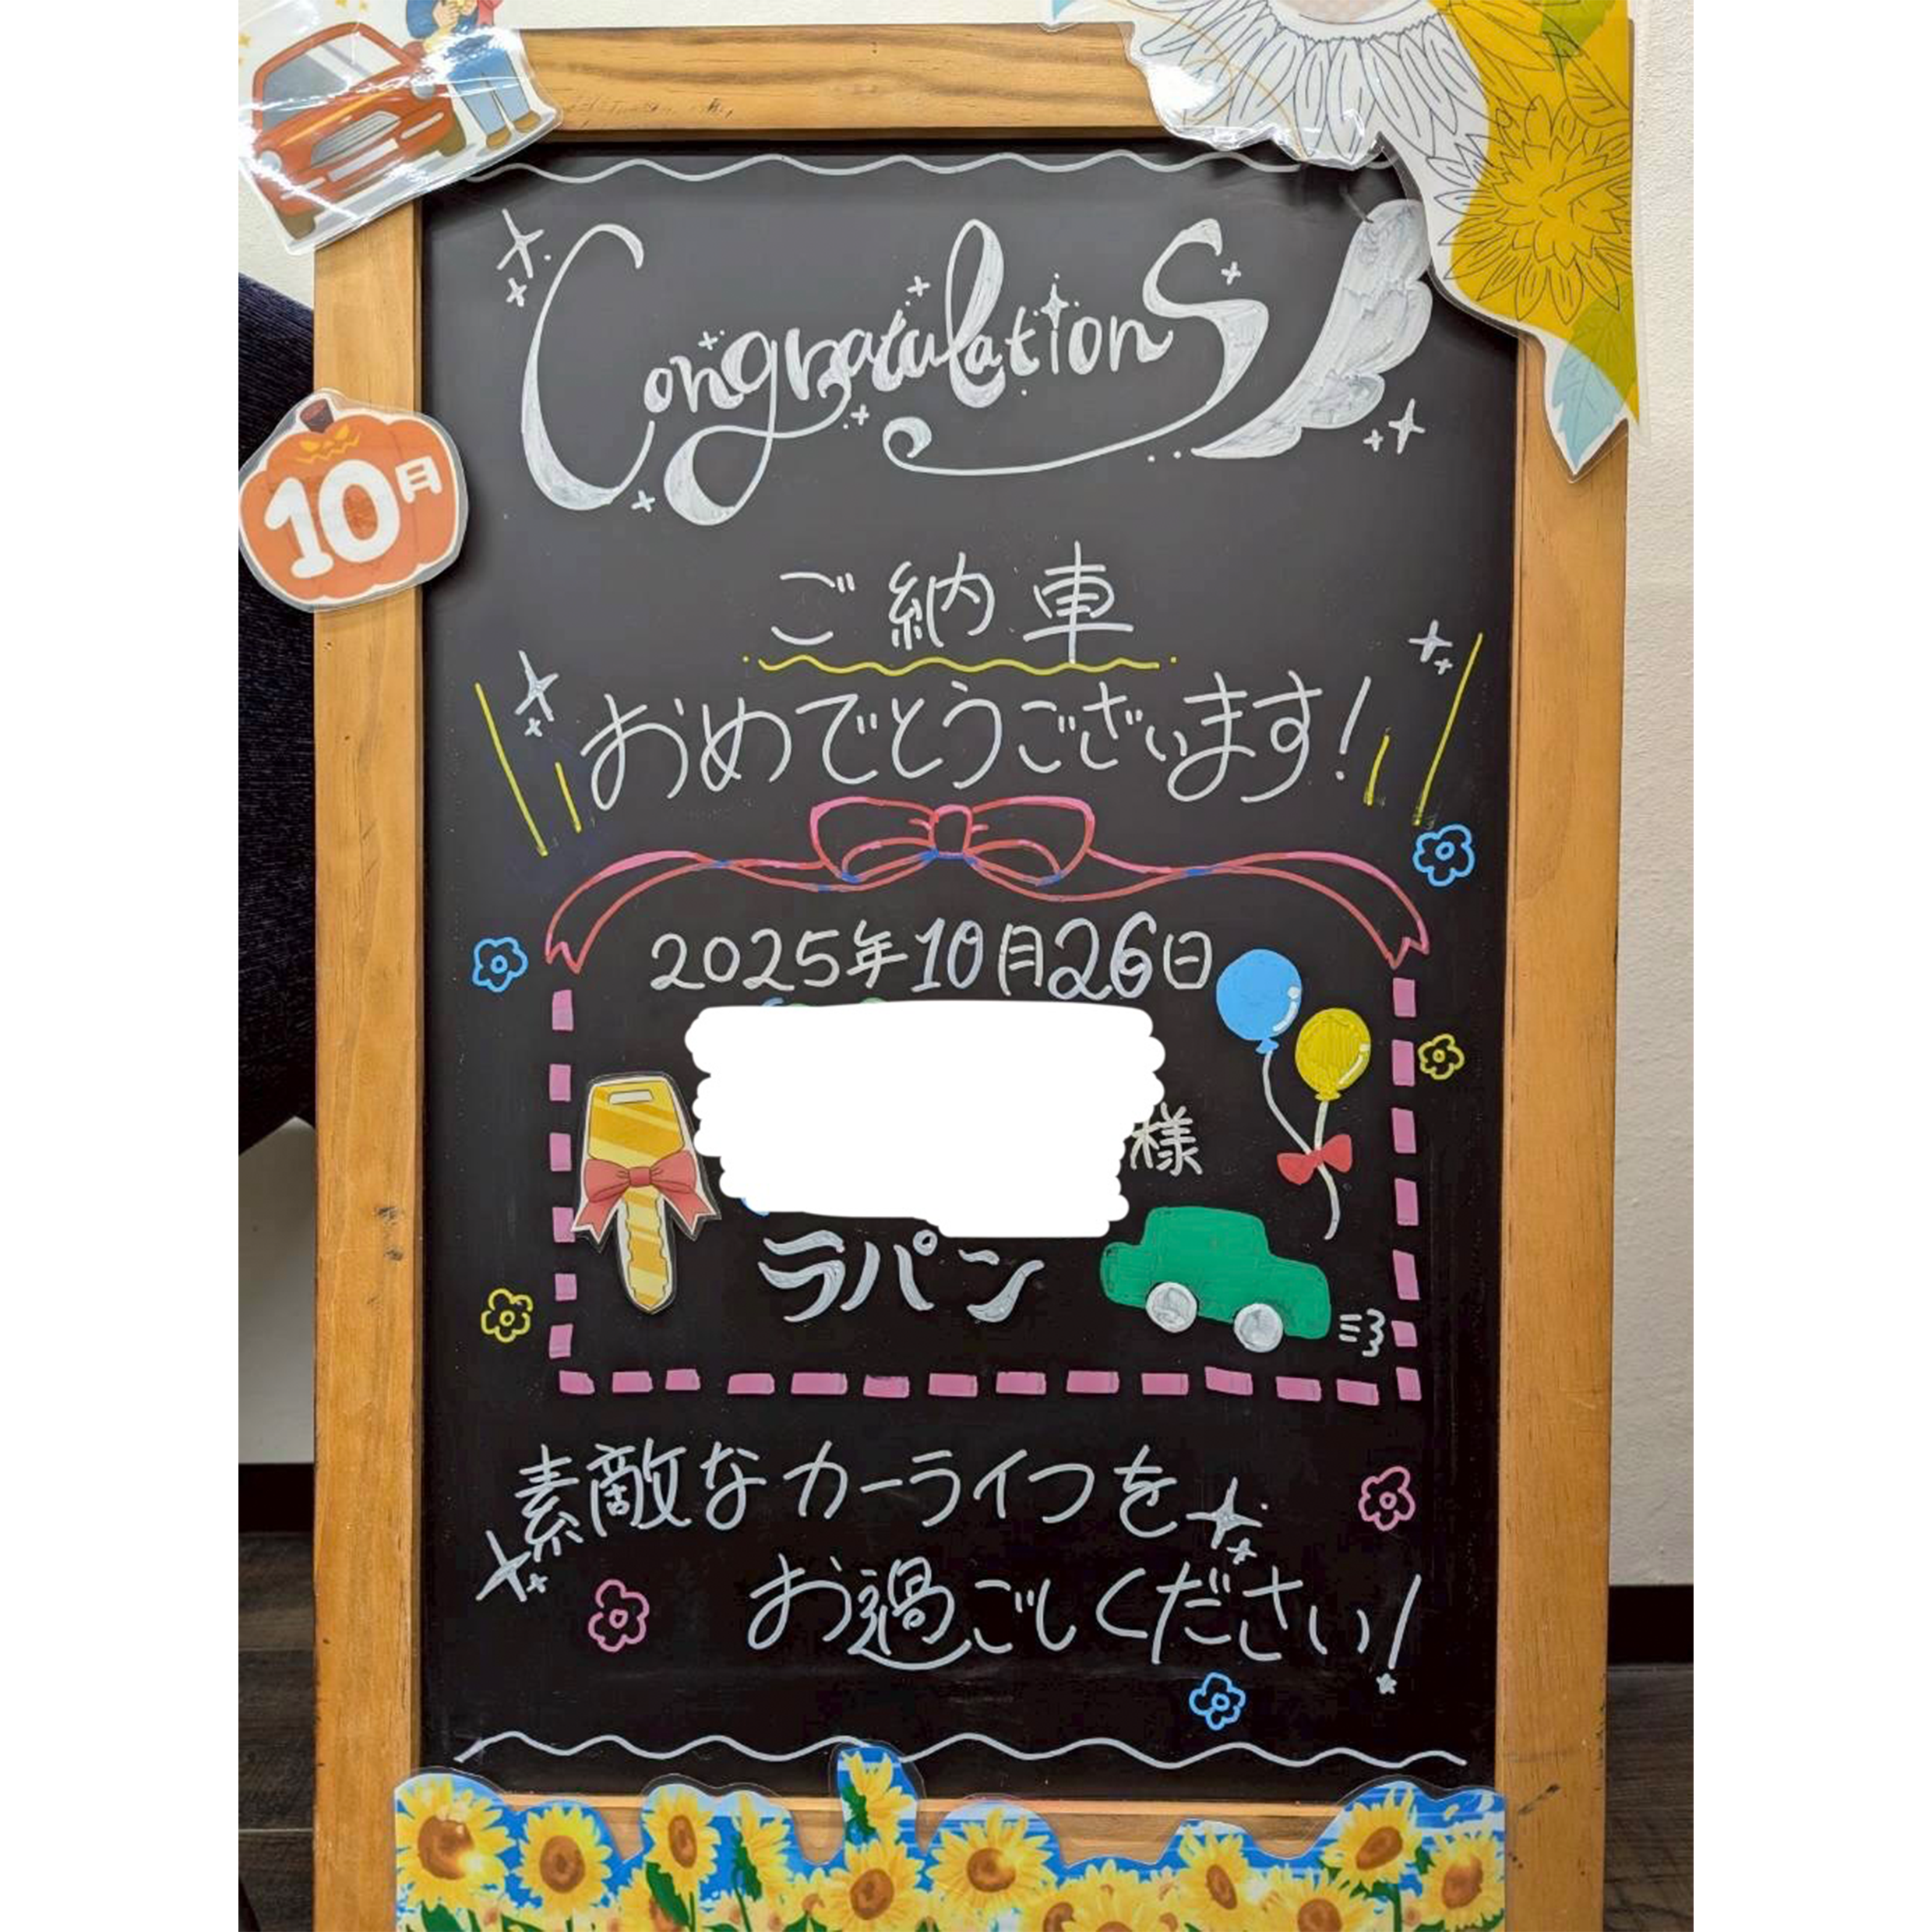 Congratulations
10月
ご納車
おめでとうございます!
2025年10月26日
様
ラパン
素敵なカーライフを
お過ごしください!